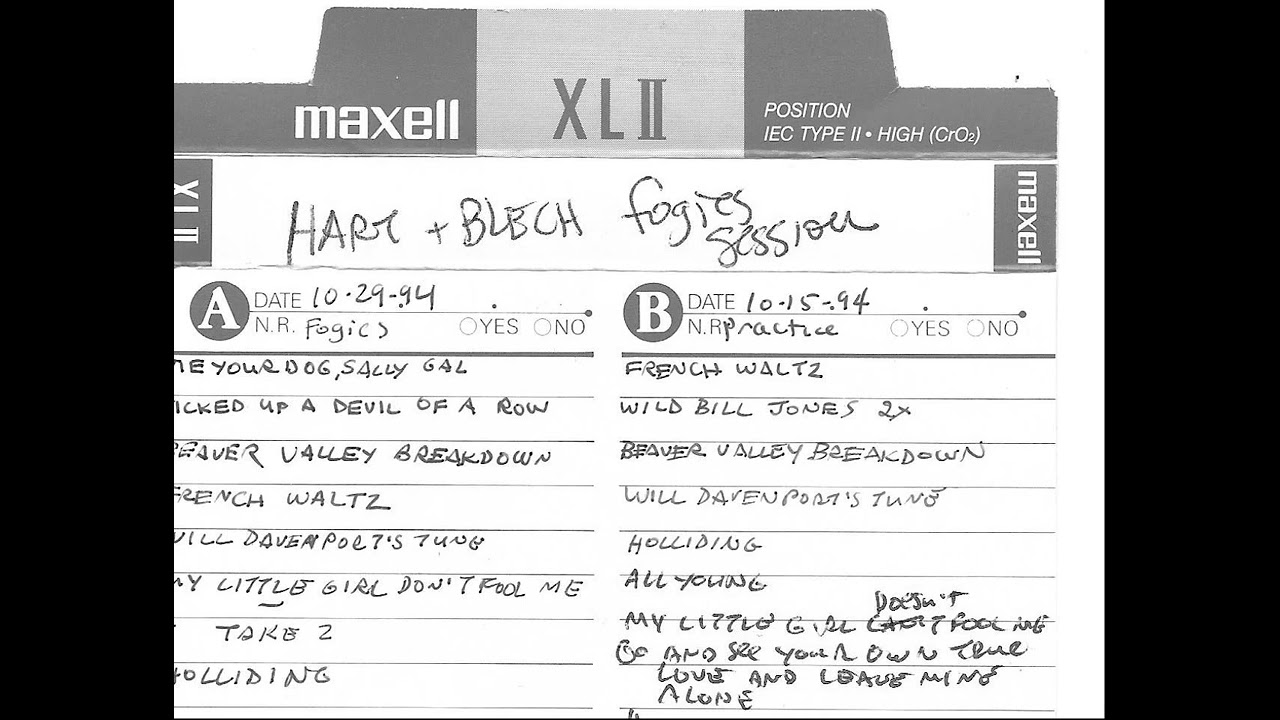 maxell
XLII
POSITION
IEC TYPE II • HIGH (CrO2)
XLII
HART + BLECH fogies
session
maxell
A DATE 10-29-94
N.R. Fogies YES NO
IE YOUR DOG, SALLY GAL
ICKED UP A DEVIL OF A ROW
BEAVER VALLEY BREAKDOWN
FRENCH WALTZ
WILL DAVENPORT'S TUNE
MY LITTLE GIRL DON'T FOOL ME
TAKE 2
HOLLIDING
B DATE 10-15-94
N.R. practice YES NO
FRENCH WALTZ
WILD BILL JONES 2x
BEAVER VALLEY BREAKDOWN
WILL DAVENPORT'S TUNE
HOLLIDING
ALL YOUNG
DOESN'T
MY LITTLE GIRL FOOL ME
GO AND SEE YOUR OWN TRUE
LOVE AND LEAVE MINE
ALONE